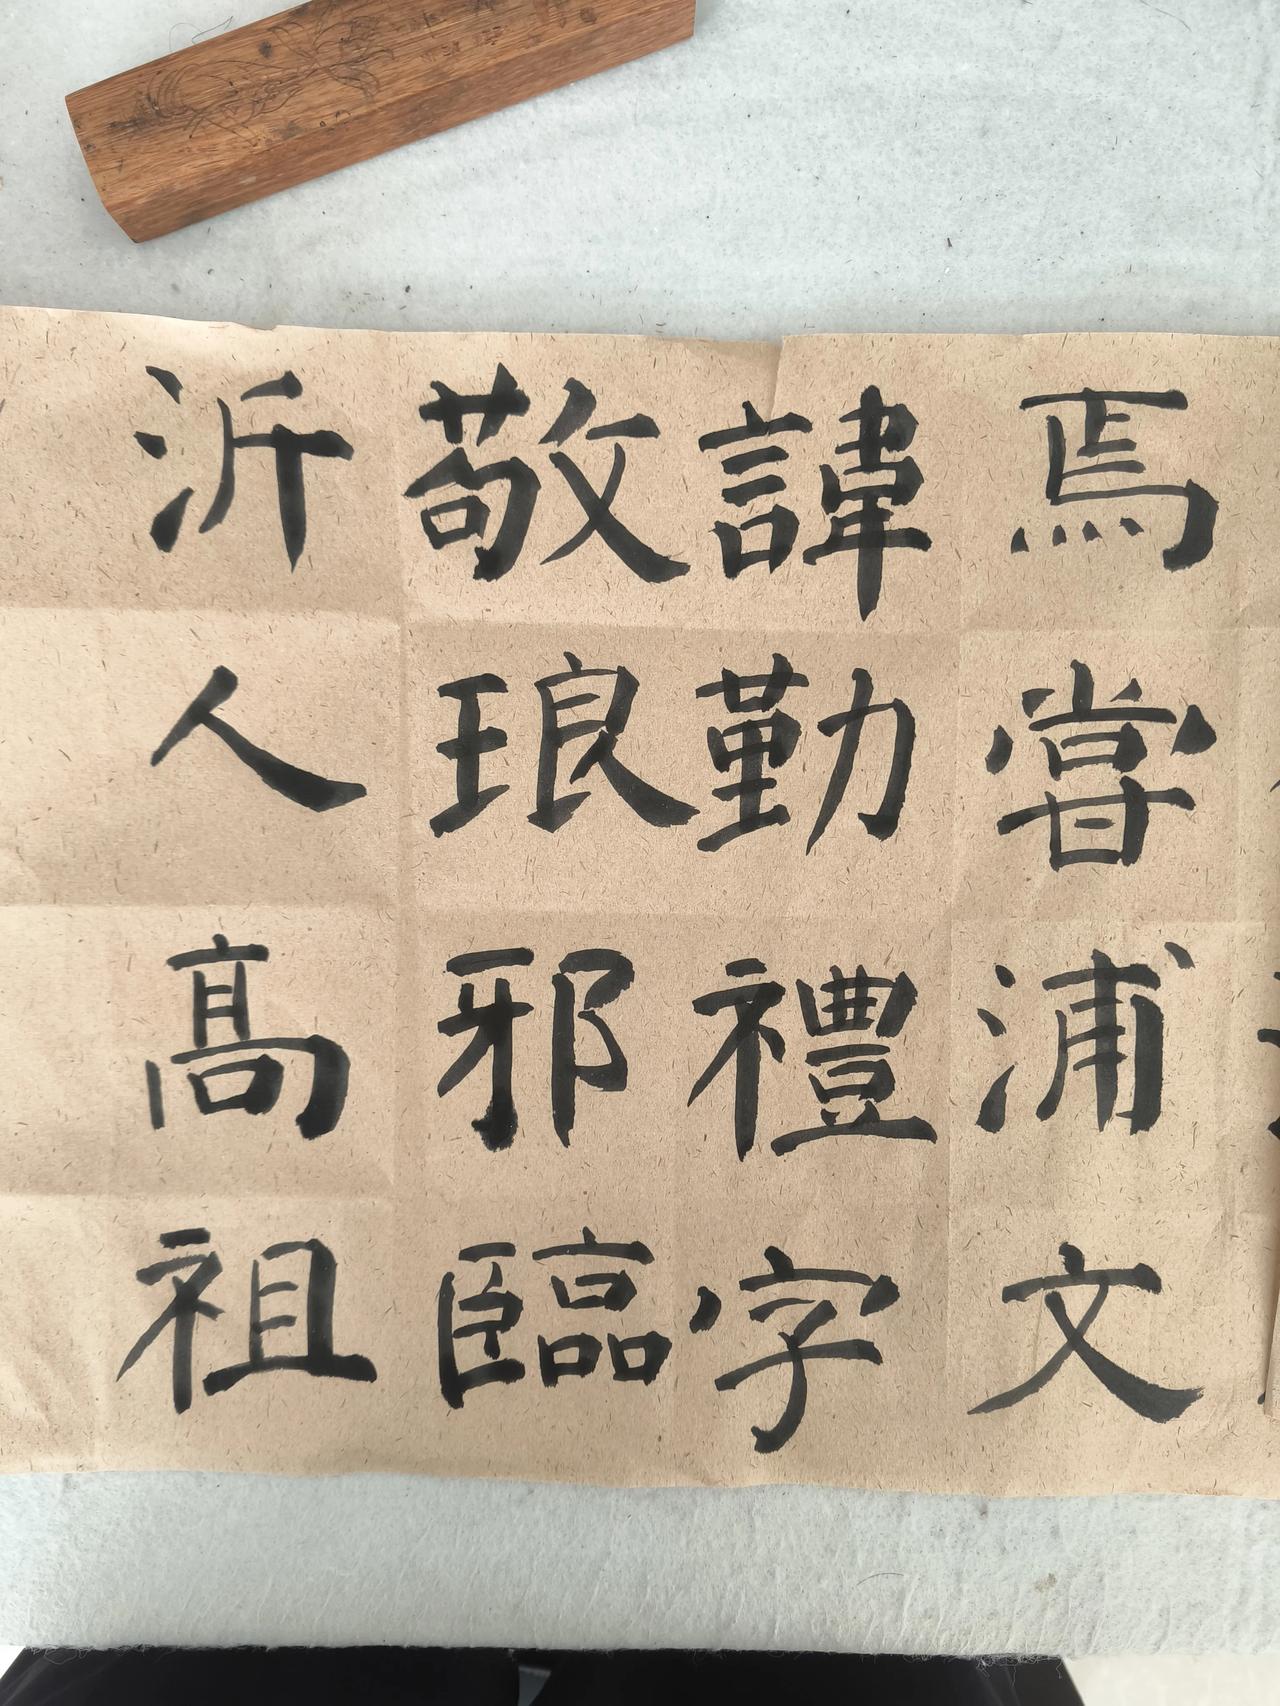 焉甞浦文
諱勤禮字
敬琅邪臨
沂人高祖